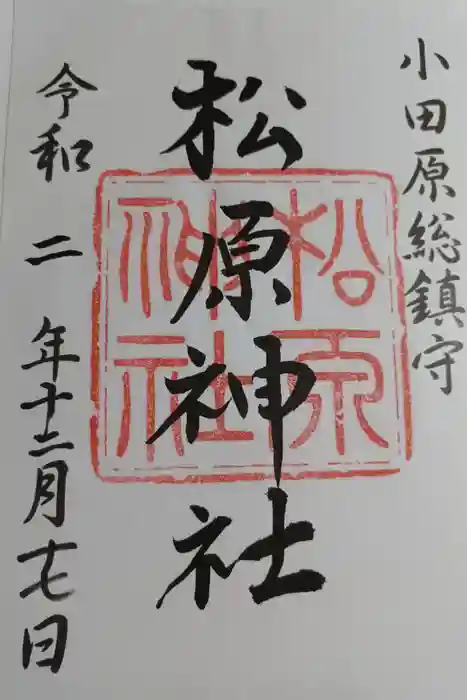 小田原総鎮守
松原神社
松原神社
令和二年十二月十七日